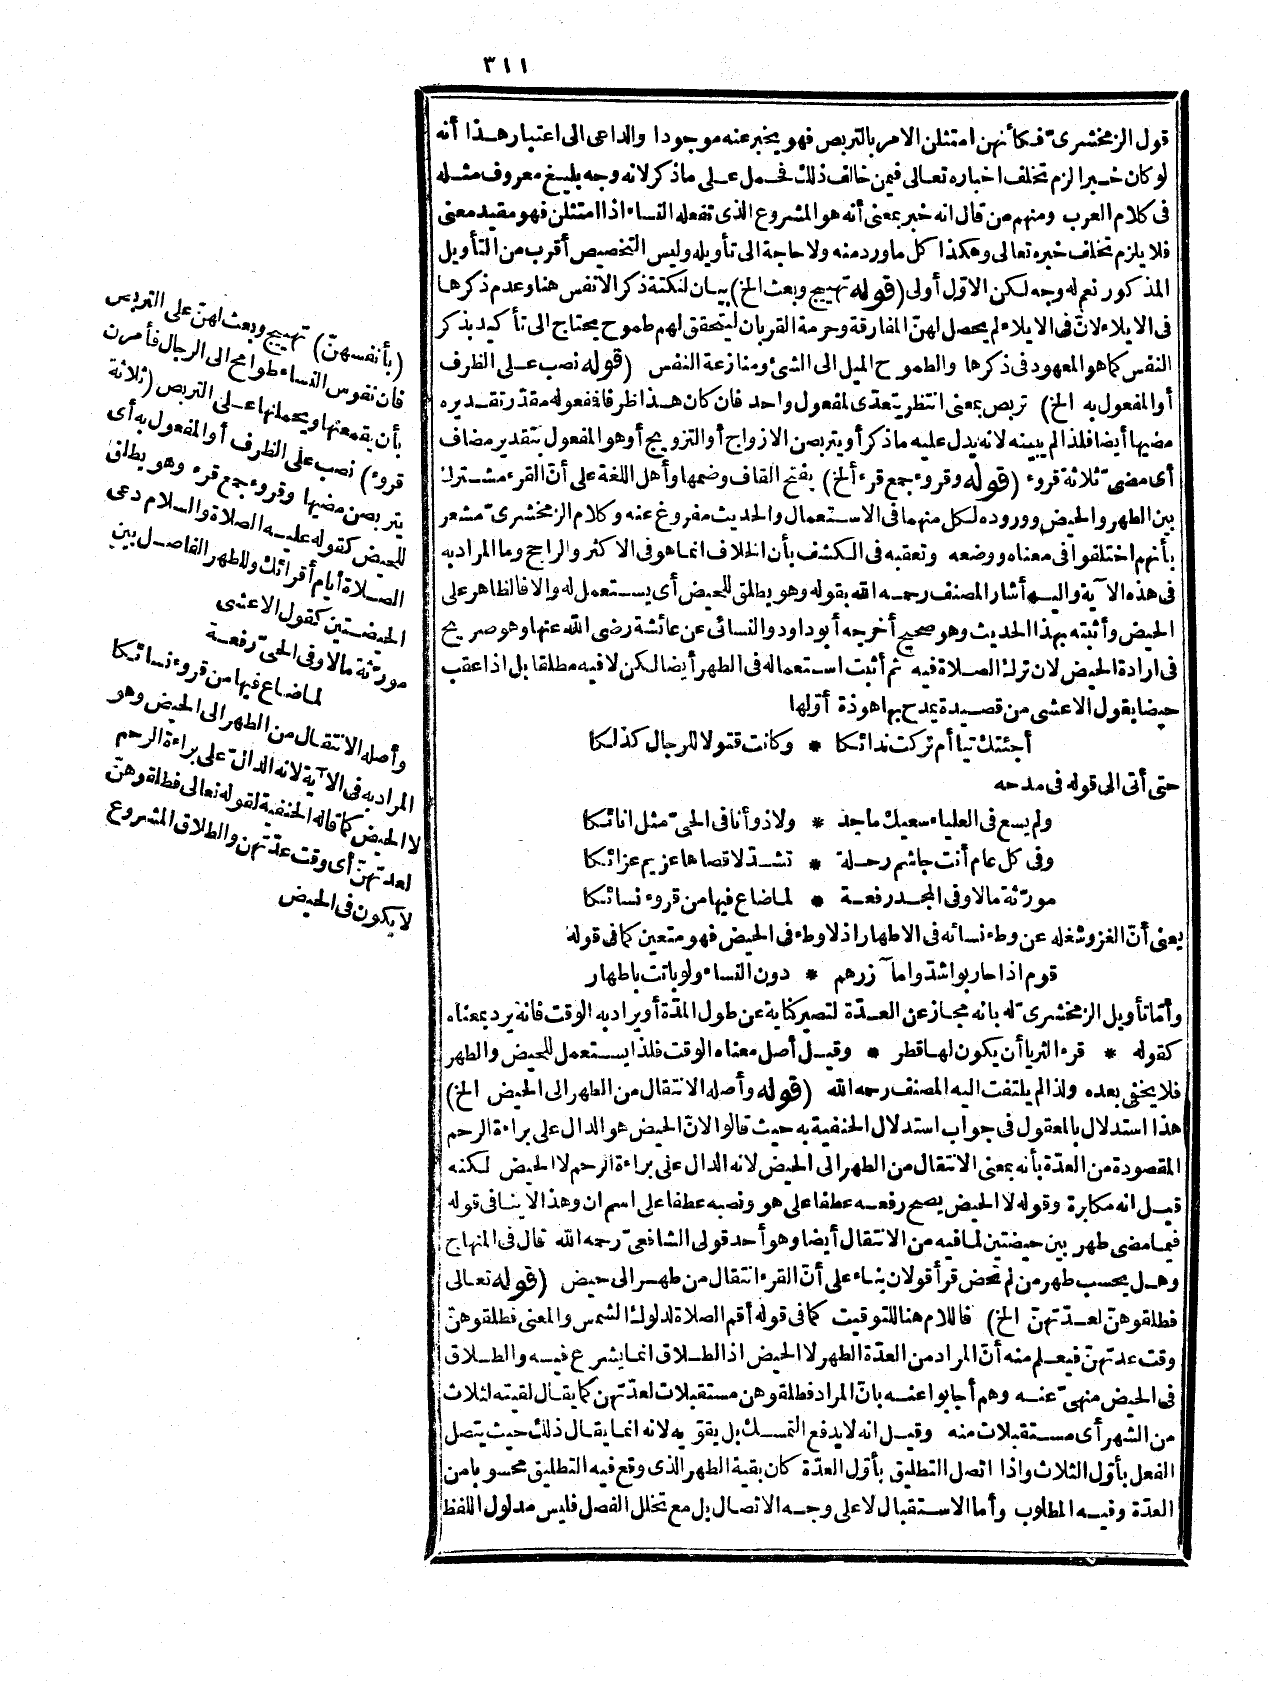 ٣١١
قول الزمخشرى فكأنهن امتثلن الامر بالتربص فهو يخبر عنه موجودا والداعى الى اعتبار هذا أنه
لو كان خبرا لزم تخلف اخباره تعالى فيمن خالف ذلك فحمل على ماذكر لانه وجه بليغ معروف مثله
فى كلام العرب ومنهم من قال انه خبر بمعنى أنه هو المشروع الذى تفعله النساء اذا امتثلن فهو مقيد معنى
فلا يلزم تخلف خبره تعالى وهكذا كل ماورد منه ولا حاجة الى تأويله وليس التخصيص أقرب من التأويل
المذكور نعم له وجه لكن الاوّل أولى (قوله تهييج وبعث الخ) بيان لنكتة ذكر الانفس هنا وعدم ذكرها
فى الايلاء لانّ فى الايلاء لم يحصل لهنّ المفارقة وحرمة القربان ليتحقق لهم طموح يحتاج الى تأكيد بذكر
النفس كما هو المعهود فى ذكرها والطموح الميل الى الشئ ومنازعة النفس (قوله نصب على الظرف
أو المفعول به الخ) تربص بمعنى انتظر يتعدّى لمفعول واحد فان كان هذا ظرفا فمفعوله مقدّر تقديره
مضيها أيضا فلذا لم يبينه لانه يدل عليه ماذكر أو يتربصن الازواج أو التزويج أو هو المفعول بتقدير مضاف
أى مضىّ ثلاثة قروء (قوله وقروء جمع قرء ألخ) بفتح القاف وضمها وأهل اللغة على أنّ القرء مشترك
بين الطهر والحيض ووروده لكل منهما فى الاستعمال والحديث مفروغ عنه وكلام الزمخشرىّ مشعر
بأنهم اختلفوا فى معناه ووضعه وتعقبه فى الكشف بأن الخلاف انما هو فى الاكثر والراجح وما المراد به
فى هذه الآية واليه أشار المصنف رحمه الله بقوله وهو يطلق للحيض أى يستعمل له والا فالظاهر على
الحيض وأثبته بهذا الحديث وهو صحيح أخرجه أبو داود والنسائى عن عائشة رضى الله عنها وهو صريح
فى ارادة الحيض لان ترك الصلاة فيه ثم أثبت استعماله فى الطهر أيضا لكن لا فيه مطلقا بل اذا عقب
حيضا بقول الاعشى من قصيدة يمدح بها هوذة أوّلها
أجئتك تيا أم تركت ندائكا * وكانت قتولا للرجال كذلكا
حتى أتى الى قوله فى مدحه
ولم يسع فى العلياء سعيك ماجد * ولا ذو أنا فى الحىّ مثل انائكا
وفى كل عام أنت جاشم رحلة * تشدّ لاقصاها عزيم عزائكا
مورّثة مالا وفى المجد رفعة * لما ضاع فيها من قروء نسائكا
يعنى أنّ الغزو شغله عن وطء نسائه فى الاطهار اذ لا وطء فى الحيض فهو متعين كما فى قوله
قوم اذا حاربوا شدّوا مآزرهم * دون النساء ولو باتت باطهار
وأمّا تأويل الزمخشرىّ له بانه مجاز عن العدّة لتصير كناية عن طول المدّة أو يراد به الوقت فانه يرد بمعناه
كقوله * قرء الثريا أن يكون لها قطر * وقيل أصل معناه الوقت فلذا يستعمل للحيض والطهر
فلا يخفى بعده ولذا لم يلتفت اليه المصنف رحمه الله (قوله وأصله الانتقال من الطهر الى الحيض الخ)
هذا استدلال بالمعقول فى جواب استدلال الحنفية به حيث قالوا لانّ الحيض هو الدال على براءة الرحم
المقصودة من العدّة بأنه بمعنى الانتقال من الطهر الى الحيض لانه الدال على براءة الرحم لا الحيض لكنه
قيل انه مكابرة وقوله لا الحيض يصح رفعه عطفا على هو ونصبه عطفا على اسم ان وهذا لا ينافى قوله
فيما مضى طهر بين حيضتين لما فيه من الانتقال أيضا وهو أحد قولى الشافعىّ رحمه الله قال فى المنهاج
وهل يحسب طهر من لم تحض قرأ قولان بناء على أنّ القرء انتقال من طهر الى حيض (قوله تعالى
فطلقوهنّ لعدّتهنّ الخ) فاللام هنا للتوقيت كما فى قوله أقم الصلاة لدلوك الشمس والمعنى فطلقوهنّ
وقت عدتهنّ فيعلم منه أنّ المراد من العدّة الطهر لا الحيض اذ الطلاق انما يشرع فيه والطلاق
فى الحيض منهىّ عنه وهم أجابوا عنه بانّ المراد فطلقوهن مستقبلات لعدّتهن كما يقال لقيته لثلاث
من الشهر أى مستقبلات منه وقيل انه لا يدفع التمسك بل يقوّيه لانه انما يقال ذلك حيث يتصل
الفعل بأوّل الثلاث واذا اتصل التطليق بأوّل العدّة كان بقية الطهر الذى وقع فيه التطليق محسوبا من
العدّة وفيه المطلوب وأما الاستقبال لا على وجه الاتصال بل مع تخلل الفصل فليس مدلول اللفظ
(بأنفسهنّ) تهييج وبعث لهنّ على التربص
فان نفوس النساء طوامح الى الرجال فأمرن
بأن يقمعنها ويحملنها على التربص (ثلاثة
قروء) نصب على الظرف أو المفعول به أى
يتربصن مضيها وقروء جمع قرء وهو يطلق
للحيض كقوله عليه الصلاة والسلام دعى
الصلاة أيام أقرائك وللطهر الفاصل بين
الحيضتين كقول الاعشى
مورّثة مالا وفى الحىّ رفعة
لما ضاع فيها من قروء نسائكا
وأصله الانتقال من الطهر الى الحيض وهو
المراد به فى الآية لانه الدالّ على براءة الرحم
لا الحيض كما قاله الحنفية لقوله تعالى فطلقوهنّ
لعدتهنّ أى وقت عدّتهن والطلاق المشروع
لا يكون فى الحيض